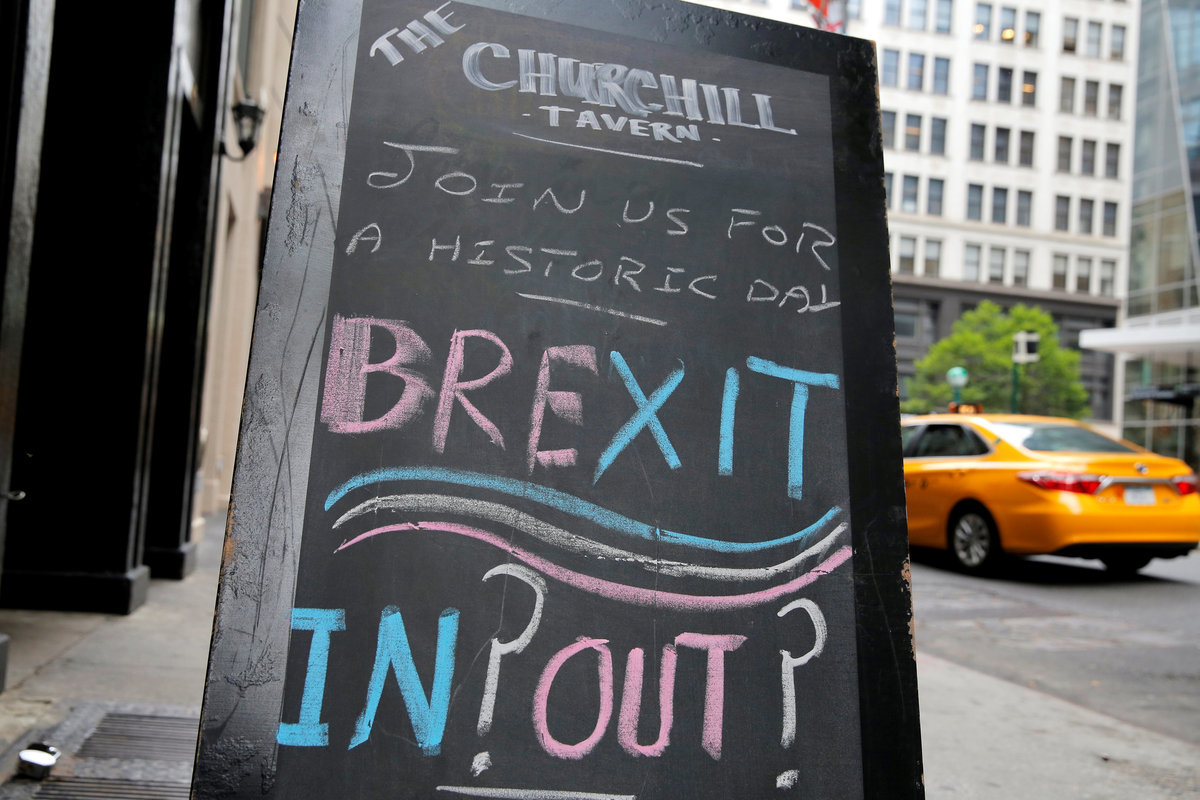 THE
CHURCHILL
- TAVERN -
JOIN US FOR
A HISTORIC DAY
BREXIT
IN? OUT?